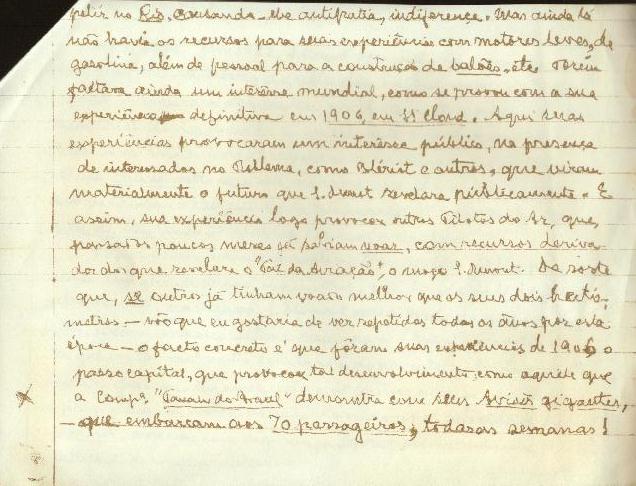 petir no Rio, causando-lhe antipatia, indiferença. Mas ainda lá
não havia os recursos para suas experiências com motores leves, de
gasolina, além de pessoal para a construção de balões, etc. Porém
faltava ainda um interesse mundial, como se provou com a sua
experiência definitiva em 1906, em St Cloud. Aqui suas
experiências provocaram um interesse público, na presença
de interessados no Problema, como Blériot e outros, que viram
materialmente o futuro que S. Dumont revelara publicamente. E
assim, sua experiência logo provocou outros Pilotos do Ar, que,
passados poucos mezes já sabiam voar, com recursos deriva-
dos dos que revelara o "Pai da Aviação", o moço S. Dumont. De sorte
que, se outros já tinham voado melhor que os seus dois hecto-
metros — vôo que eu gostaria de ver repetidos todos os anos por esta
época — o facto concreto é que fôram suas experiencias de 1906 o
passo capital, que provocou tal desenvolvimento como aquele que
a Compª "Panair do Brasil" demonstra com seus Aviões gigantes,
— que embarcam aos 70 passageiros, todas as semanas!